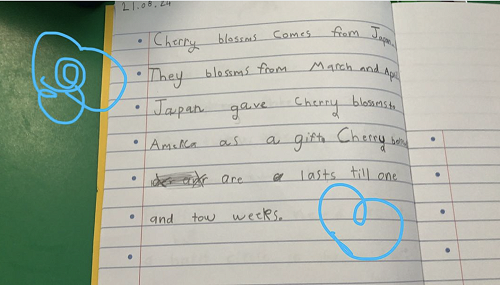 21.08.24
Cherry blossms comes from Japan.
They blossms from March and April
Japan gave Cherry blossmsto
America as a gift. Cherry
are lasts till one
and tow weeks.